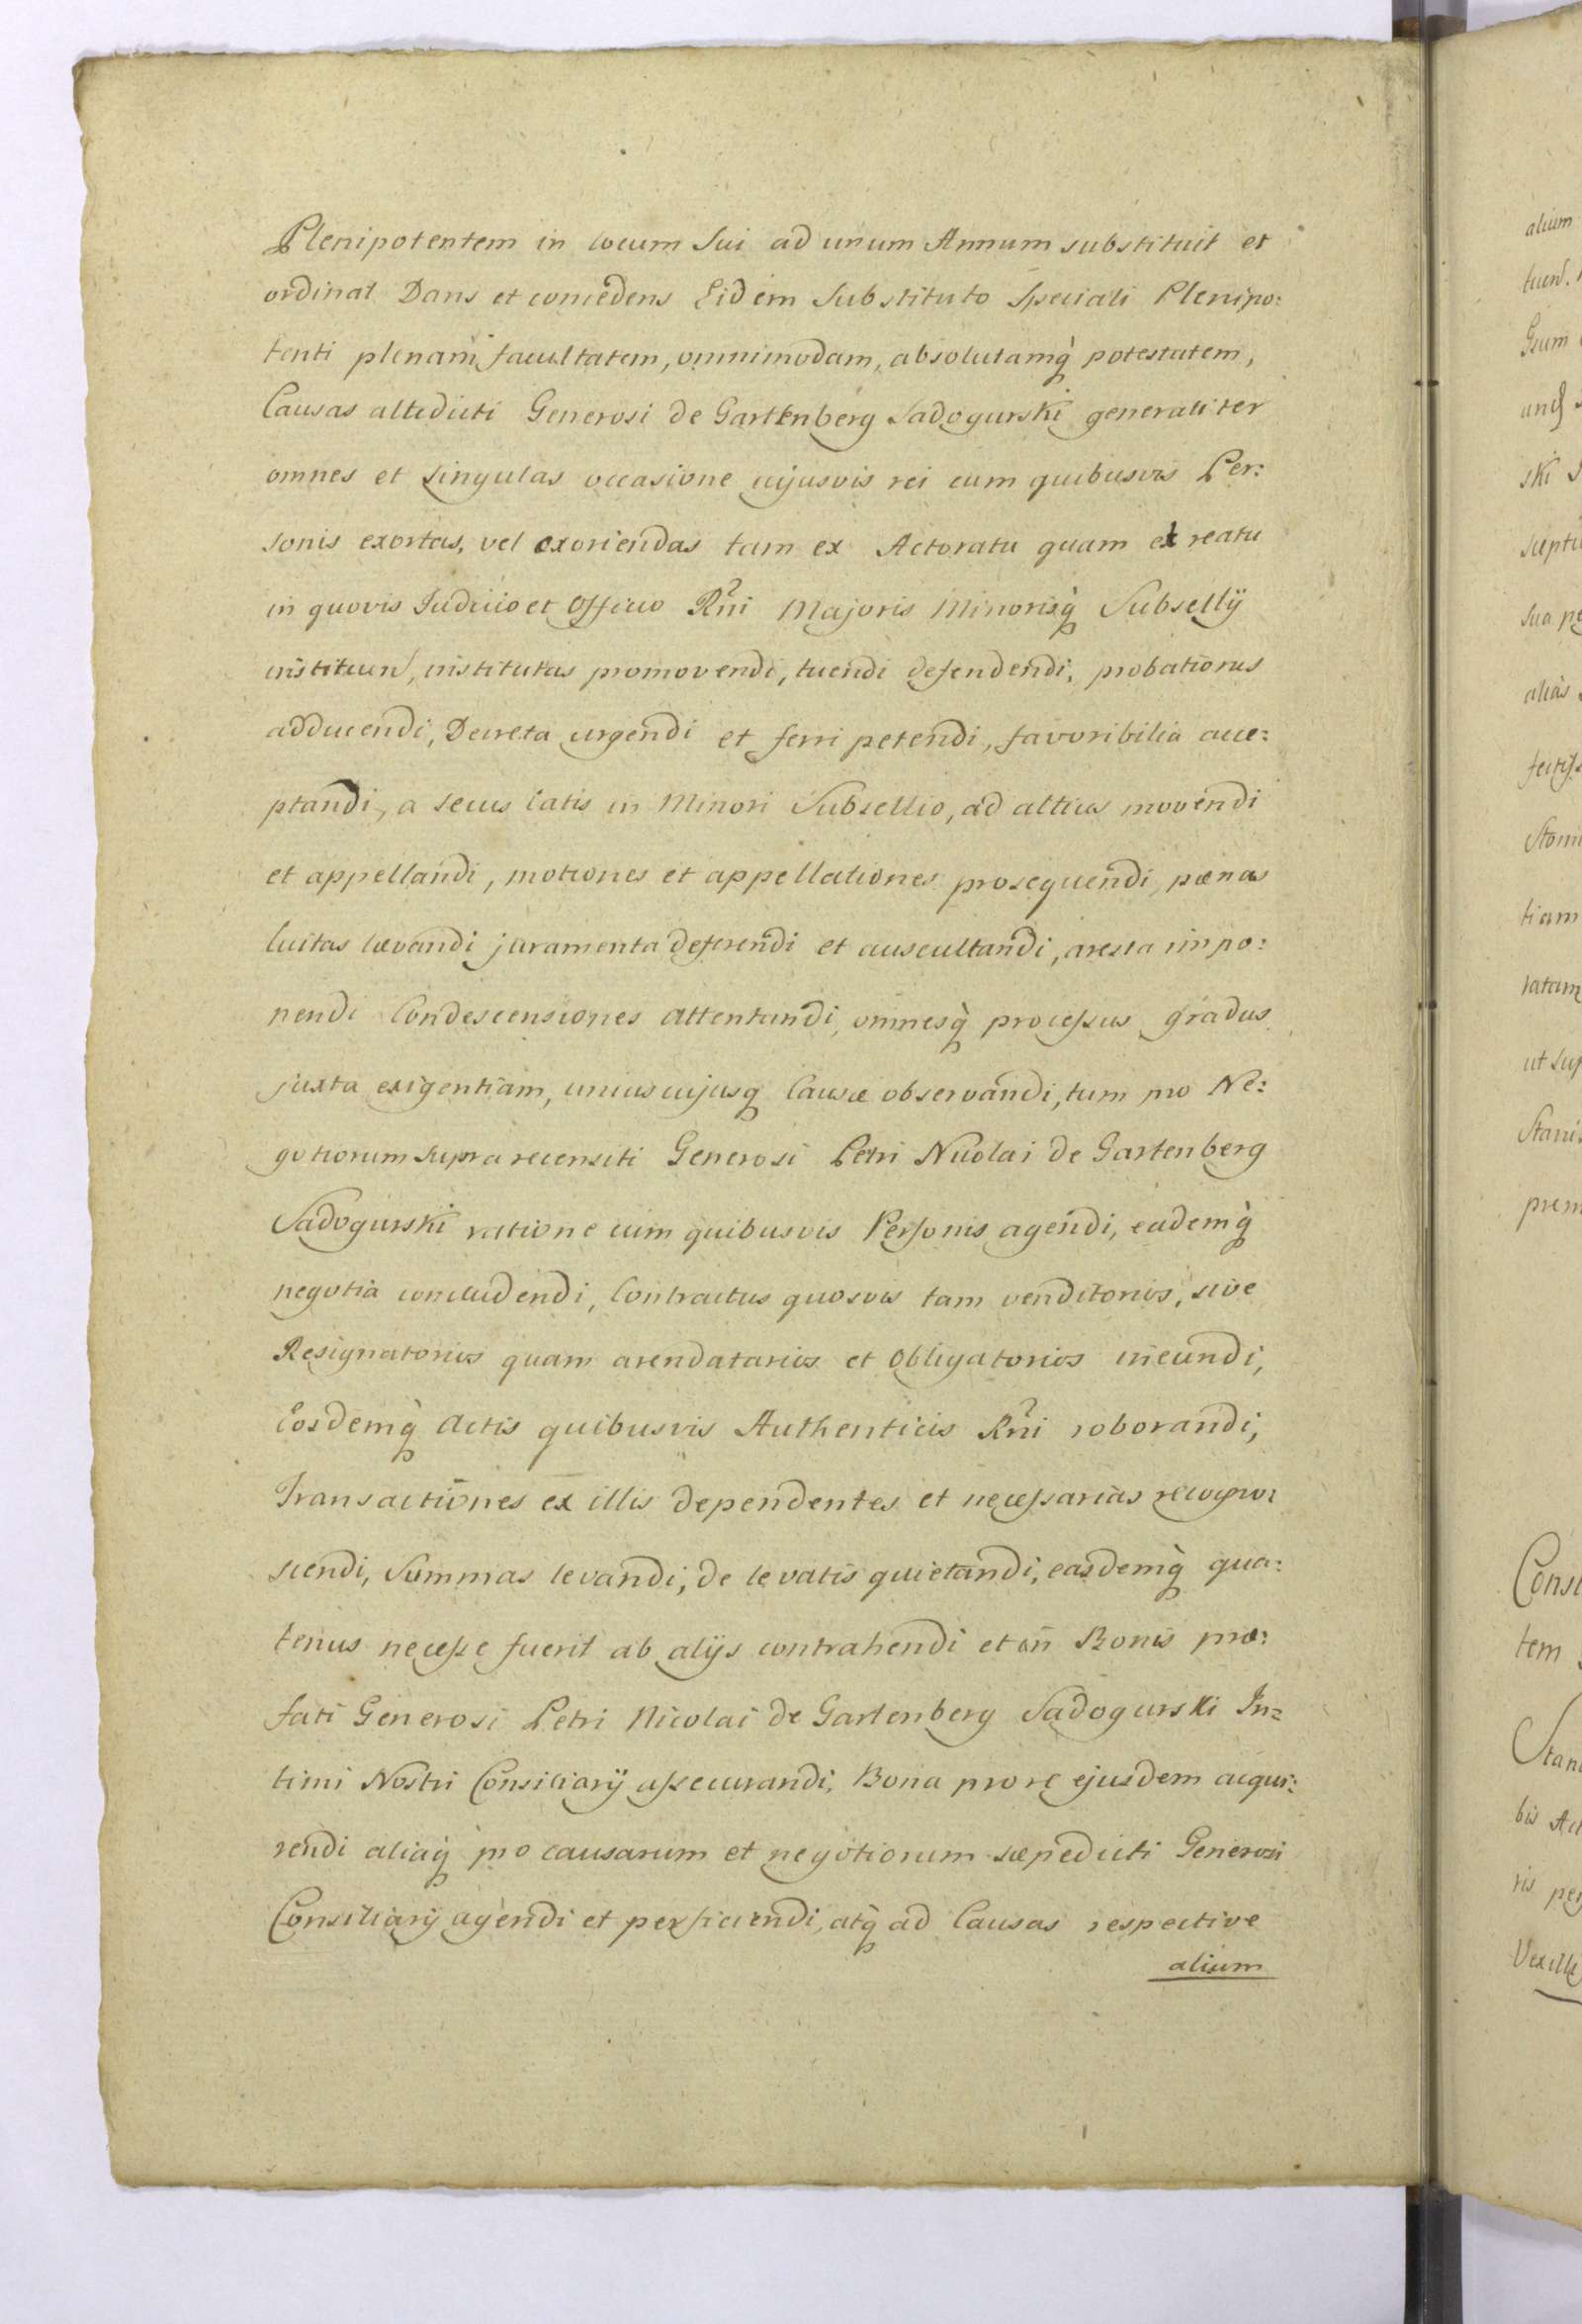 Plenipotentem in locum Sui ad unum Annum substituit et
ordinat Dans et concedens Eidem Substituto Speciali Plenipo:
tenti plenam facultatem, omnimodam, absolutamq̀ potestatem,
Causas altedicti Generosi de Gartenberg Sadogurski generaliter
omnes et singulas occasione cujusvis rei cum quibusvis Per:
sonis exortas, vel exoriendas tam ex Actoratu quam ex reatu
in quovis Judicio et Officio Rni Majoris Minorisq̀ Subsellij
instituen, institutas promovendi, tuendi defendendi, probationes
adducendi, Decreta urgendi et ferri petendi, favoribilia acce:
ptandi, a secus latis in Minori Subsellio, ad altius movendi
et appellandi, motiones et appellationes prosequendi, pœnas
luitas lævandi juramenta deferendi et auscultandi, aresta impo:
nendi Condescensiones attentandi, omnesq̀ processus gradus
juxta exigentiam, uniuscujusq Causæ observandi, tum pro Ne:
gotiorum supra recensiti Generosi Petri Nicolai de Gartenberg
Sadogurski ratione cum quibusvis Personis agendi, eademq̀
negotia concludendi, Contractus quosvis tam venditorios, sive
Resignatorios quam arendatarios et Obligatorios ineundi,
Eosdemq̀ Actis quibusvis Authenticis Rni roborandi,
Transactiones ex illis dependentes et necessarias recogno:
scendi, Summas levandi, de levatis quietandi, easdemq̀ qua:
tenus necesse fuerit ab alijs contrahendi et in Bonis præ:
fati Generosi Petri Nicolai de Gartenberg Sadogurski In:
timi Nostri Consiliarij assecurandi, Bona pro re ejusdem acqui:
rendi aliaq̀ pro causarum et negotiorum sæpedicti Generosi
Consiliarij agendi et perficiendi, atq̀ ad Causas respective
alium
alium
Gsum
ski
sua pe
alias
tiam
ut sup
Stani
prem
Consi
tem
Stani
bis Act
ris per